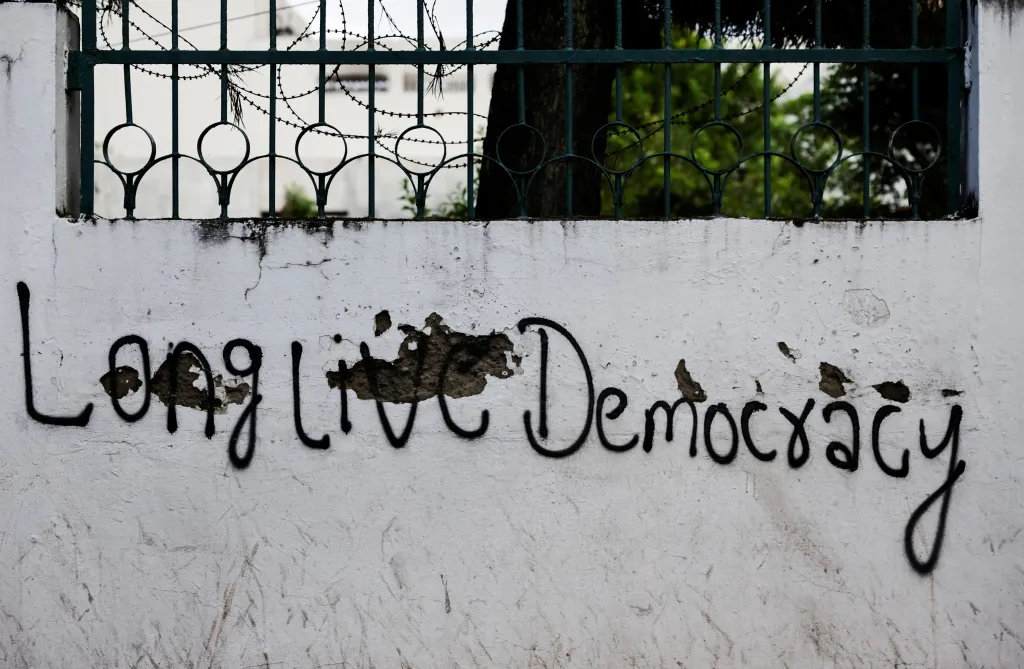 Long live Democracy